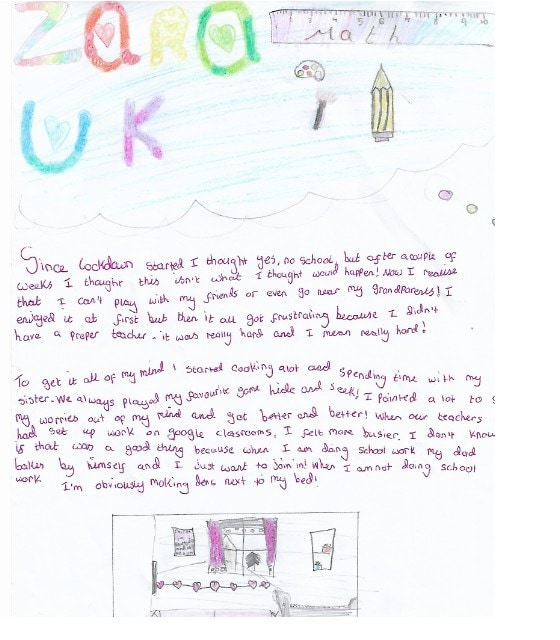 Zara
UK
1 2 3 4 5 6 7 8 9 10
Math
Since lockdown started I thought yes, no school, but after a couple of
weeks I thought this isn't what I thought would happen! Now I realise
that I can't play with my friends or even go near my Grandparents! I
enjoyed it at first but then it all got frustrating because I didn't
have a proper teacher - it was really hard and I mean really hard!
To get it all of my mind I started cooking alot and spending time with my
sister. We always played my favourite game hide and seek! I painted a lot to
my worries out of my mind and got better and better! When our teachers
had set up work on google classrooms, I felt more busier. I don't know
is that was a good thing because when I am doing school work my dad
bakes by himself and I just want to join in! When I am not doing school
work I'm obviously making dens next to my bed!